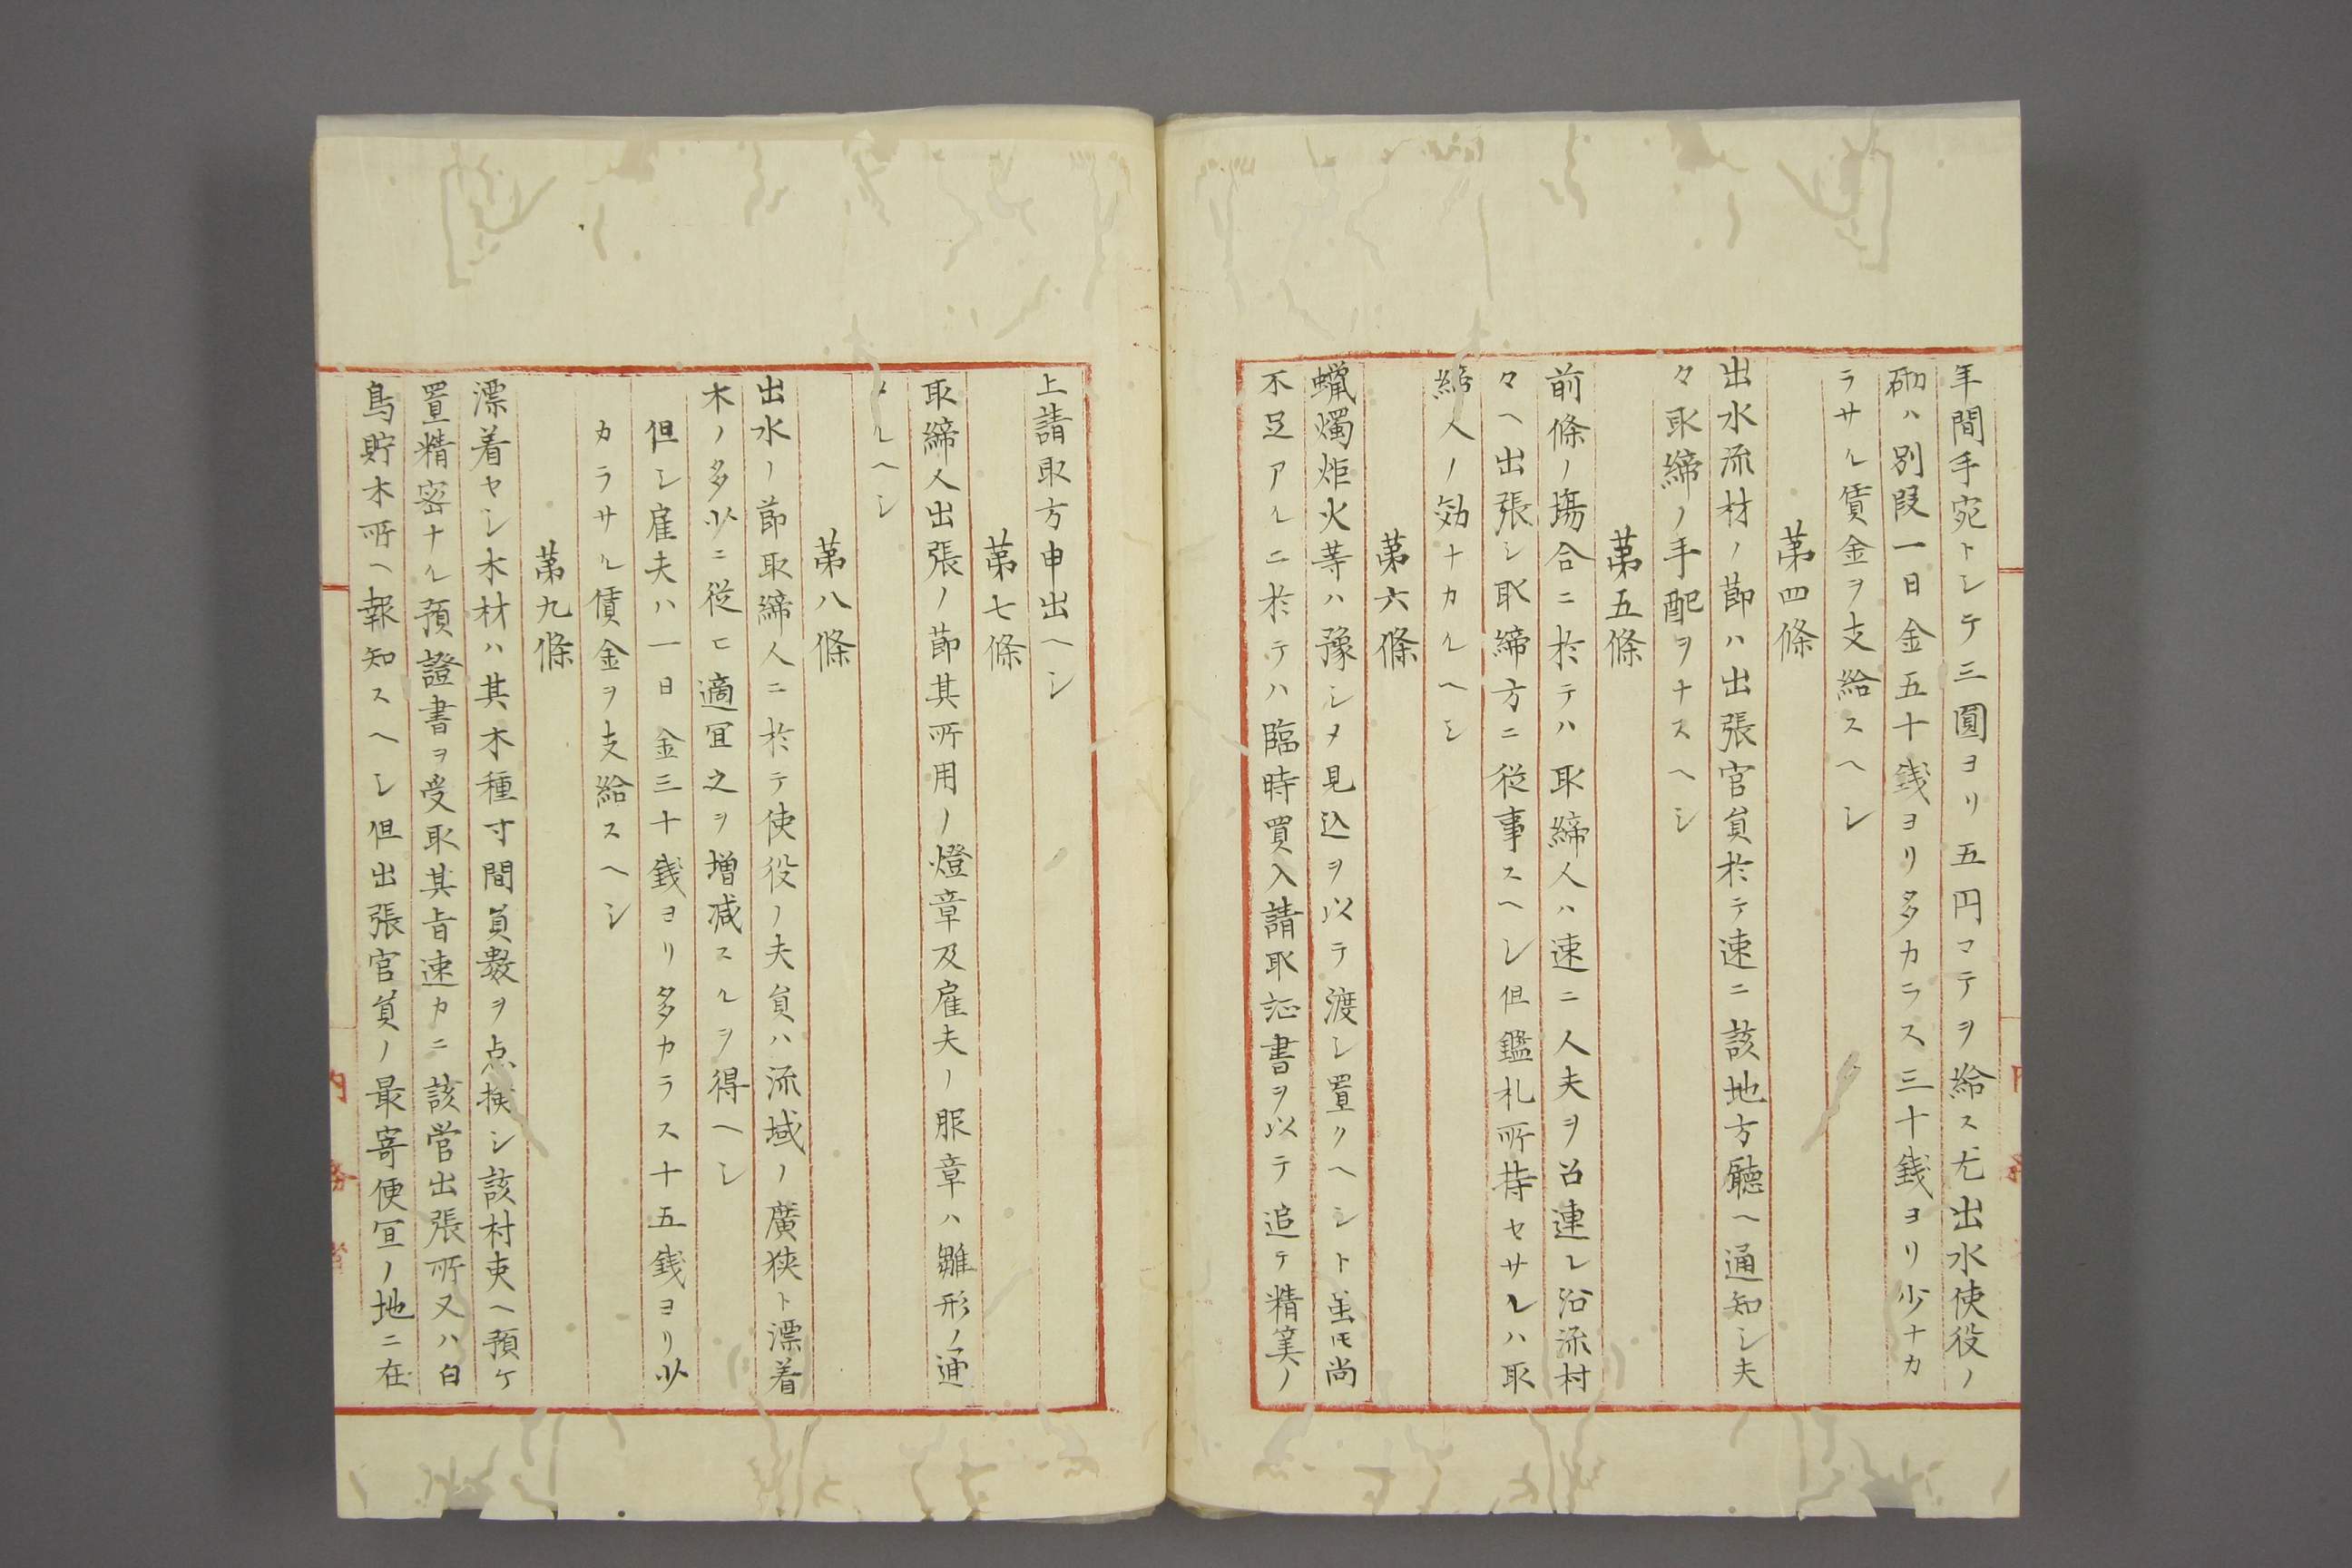 年間手宛トシテ三圓ヨリ五円マテヲ給ス尤出水使役ノ
砌ハ別段一日金五十銭ヨリ多カラス三十銭ヨリ少ナカ
ラサル賃金ヲ支給スヘシ
第四條
出水流材ノ節ハ出張官員於テ速ニ該地方廳ヘ通知シ夫
々取締ノ手配ヲナスヘシ
第五條
前條ノ塲合ニ於テハ取締人ハ速ニ人夫ヲ召連レ沿流村
々ヘ出張シ取締方ニ従事スヘシ但鑑札所持セサルハ取
締人ノ効ナカルヘシ
第六條
蠟燭炬火等ハ豫シメ見込ヲ以テ渡シ置クヘシト虽𪜈尚
不足アルニ於テハ臨時買入請取証書ヲ以テ追テ精筭ノ
上請取方申出ヘシ
第七條
取締人出張ノ節其所用ノ燈章及雇夫ノ服章ハ雛形ノ通
タルヘシ
第八條
出水ノ節取締人ニ於テ使役ノ夫員ハ流域ノ廣狭ト漂着
木ノ多少ニ従ヒ適冝之ヲ増减スルヲ得ヘシ
但シ雇夫ハ一日金三十銭ヨリ多カラス十五銭ヨリ少
カラサル賃金ヲ支給スヘシ
第九條
漂着セシ木材ハ其木種寸間員数ヲ点検シ該村吏ヘ預ケ
置精密ナル預證書ヲ受取其旨速カニ該営出張所又ハ白
鳥貯木所ヘ報知スヘシ但出張官員ノ最寄便冝ノ地ニ在
内務省